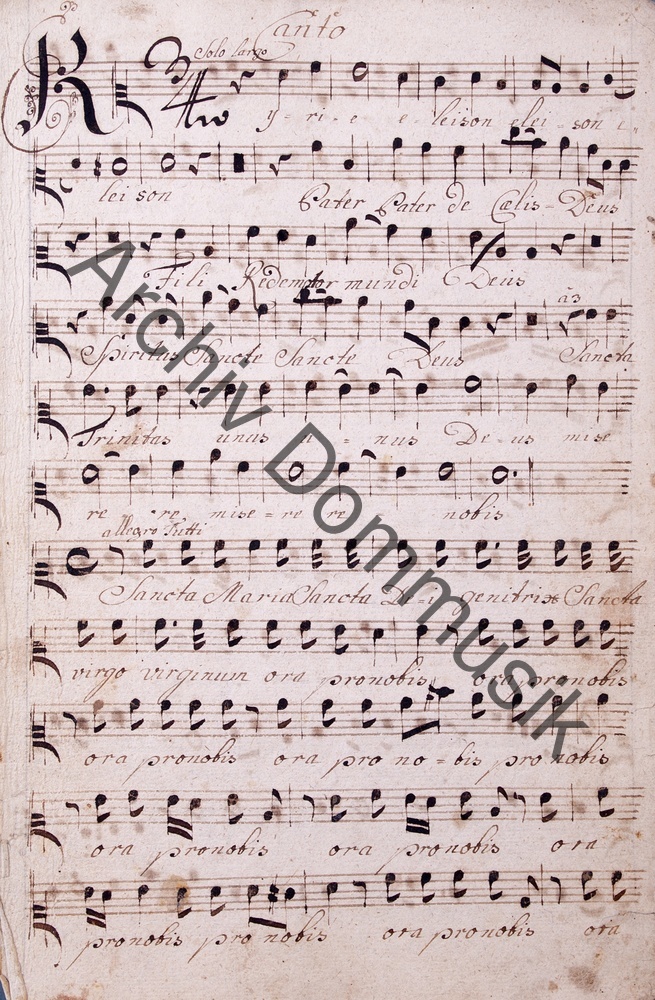 Canto
Solo largo
Ky = ri = e e = leison elei = son e =
lei son Pater Pater de Cœlis = Deus
Fili Redemptor mundi Deus
a3
Spiritus Sancte Sancte Deus Sancta
Trinitas unus u = nus De = us mise
re re mise = re re nobis
allegro Tutti
Sancta Maria Sancta De = i genitrix Sancta
virgo virginum ora pronobis ora pronobis
ora pronobis ora pro no = bis pro nobis
ora pronobis ora pronobis ora
pronobis pro nobis ora pronobis ora
Archiv Dommusik